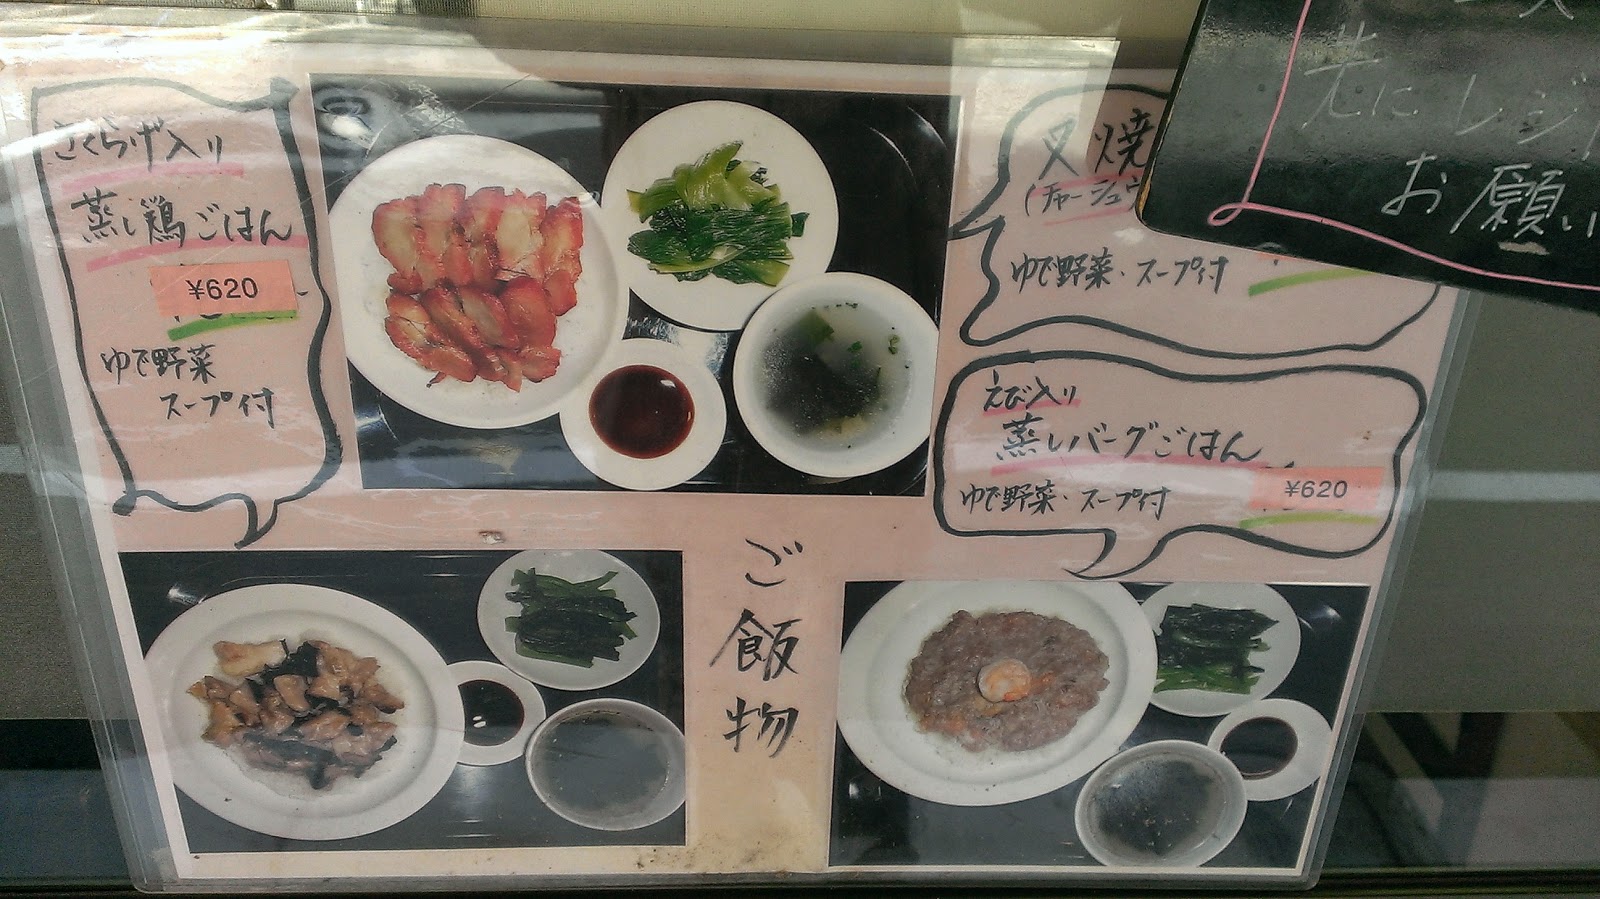 きくらげ入り
蒸し鶏ごはん
¥620
ゆで野菜
スープ付
叉焼
(チャーシュウ
ゆで野菜・スープ付
えび入り
蒸しバーグごはん
ゆで野菜・スープ付
¥620
ご飯物
先にレジ
お願い